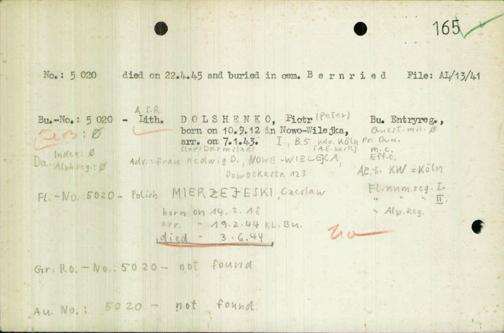 165
No.: 5 020 died on 22.4.45 and buried in cem. B e r n r i e d File: AL/13/41
A.S.R.
Bu.-No.: 5 020 - Lith. D O L S H E N K O, Piotr (Peter) Bu. Entryreg.,
born on 10.9.12 in Nowo-Wilejka, Quest.mil. Ø
arr. on 7.1.43. Köln Pr. Qun.
Index: Ø m.c.
Da. Alph.reg.: Ø Adr.: Frau Hedwig D., NOWE-WILEJKA, Eff.c.
123 KW = Köln
Fl.-No.-5020- Polish MIERZEJESKI, Czeslaw Fl.num.reg. I.
" " II.
born on 14.2.18 " Alp.Reg.
arr. " 19.2.44 KL. Bu.
died " 3.6.44
Gr. Ro. - No.: 5020 - not found
Au. No.: 5020 - not found